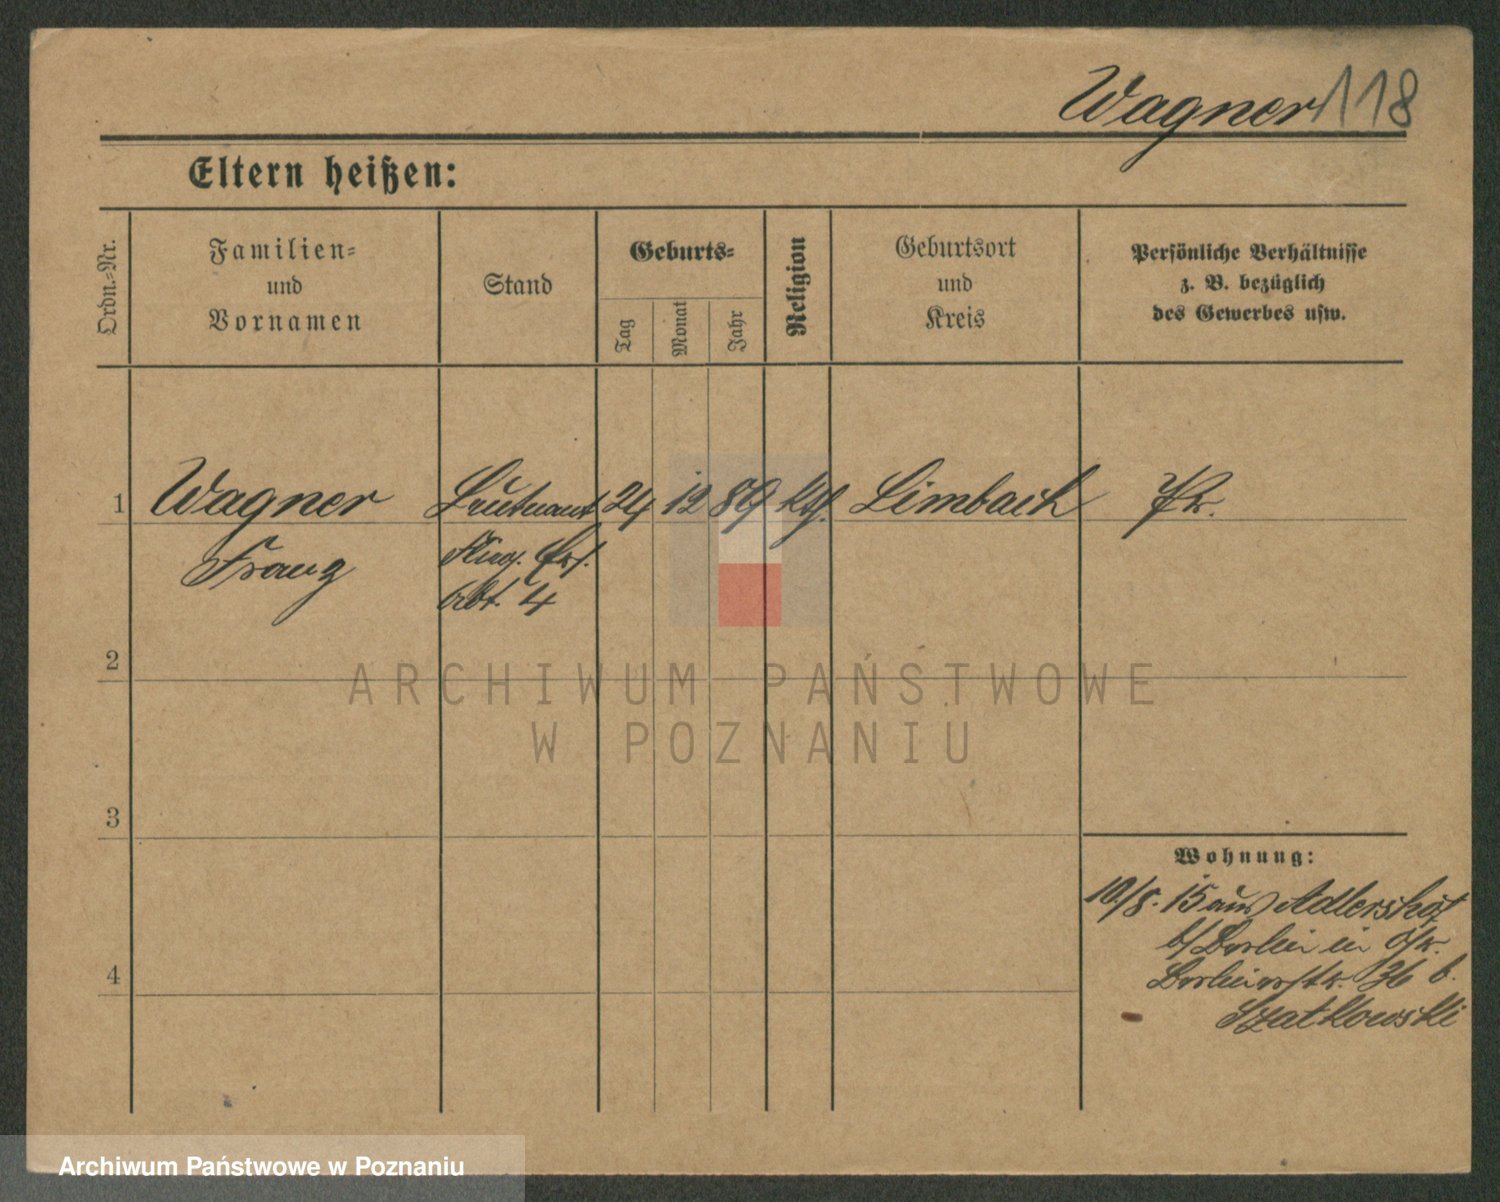 Wagner 118
Eltern heißen:
Ordn.=Nr.
Familien=
und
Vornamen
Stand
Geburts=
Tag
Monat
Jahr
Religion
Geburtsort
und
Kreis
Persönliche Verhältnisse
z. B. bezüglich
des Gewerbes usw.
1 Wagner Leutnant 24 12 89 kth. Limbach Pr.
Franz Flug. Ers.
Abt. 4
2
ARCHIWUM PAŃSTWOWE
W POZNANIU
3
Wohnung:
10/8. 15 aus Adlershof
b/ Berlin in
4
Berlinerstr. 36 b.
Szatkowski
Archiwum Państwowe w Poznaniu